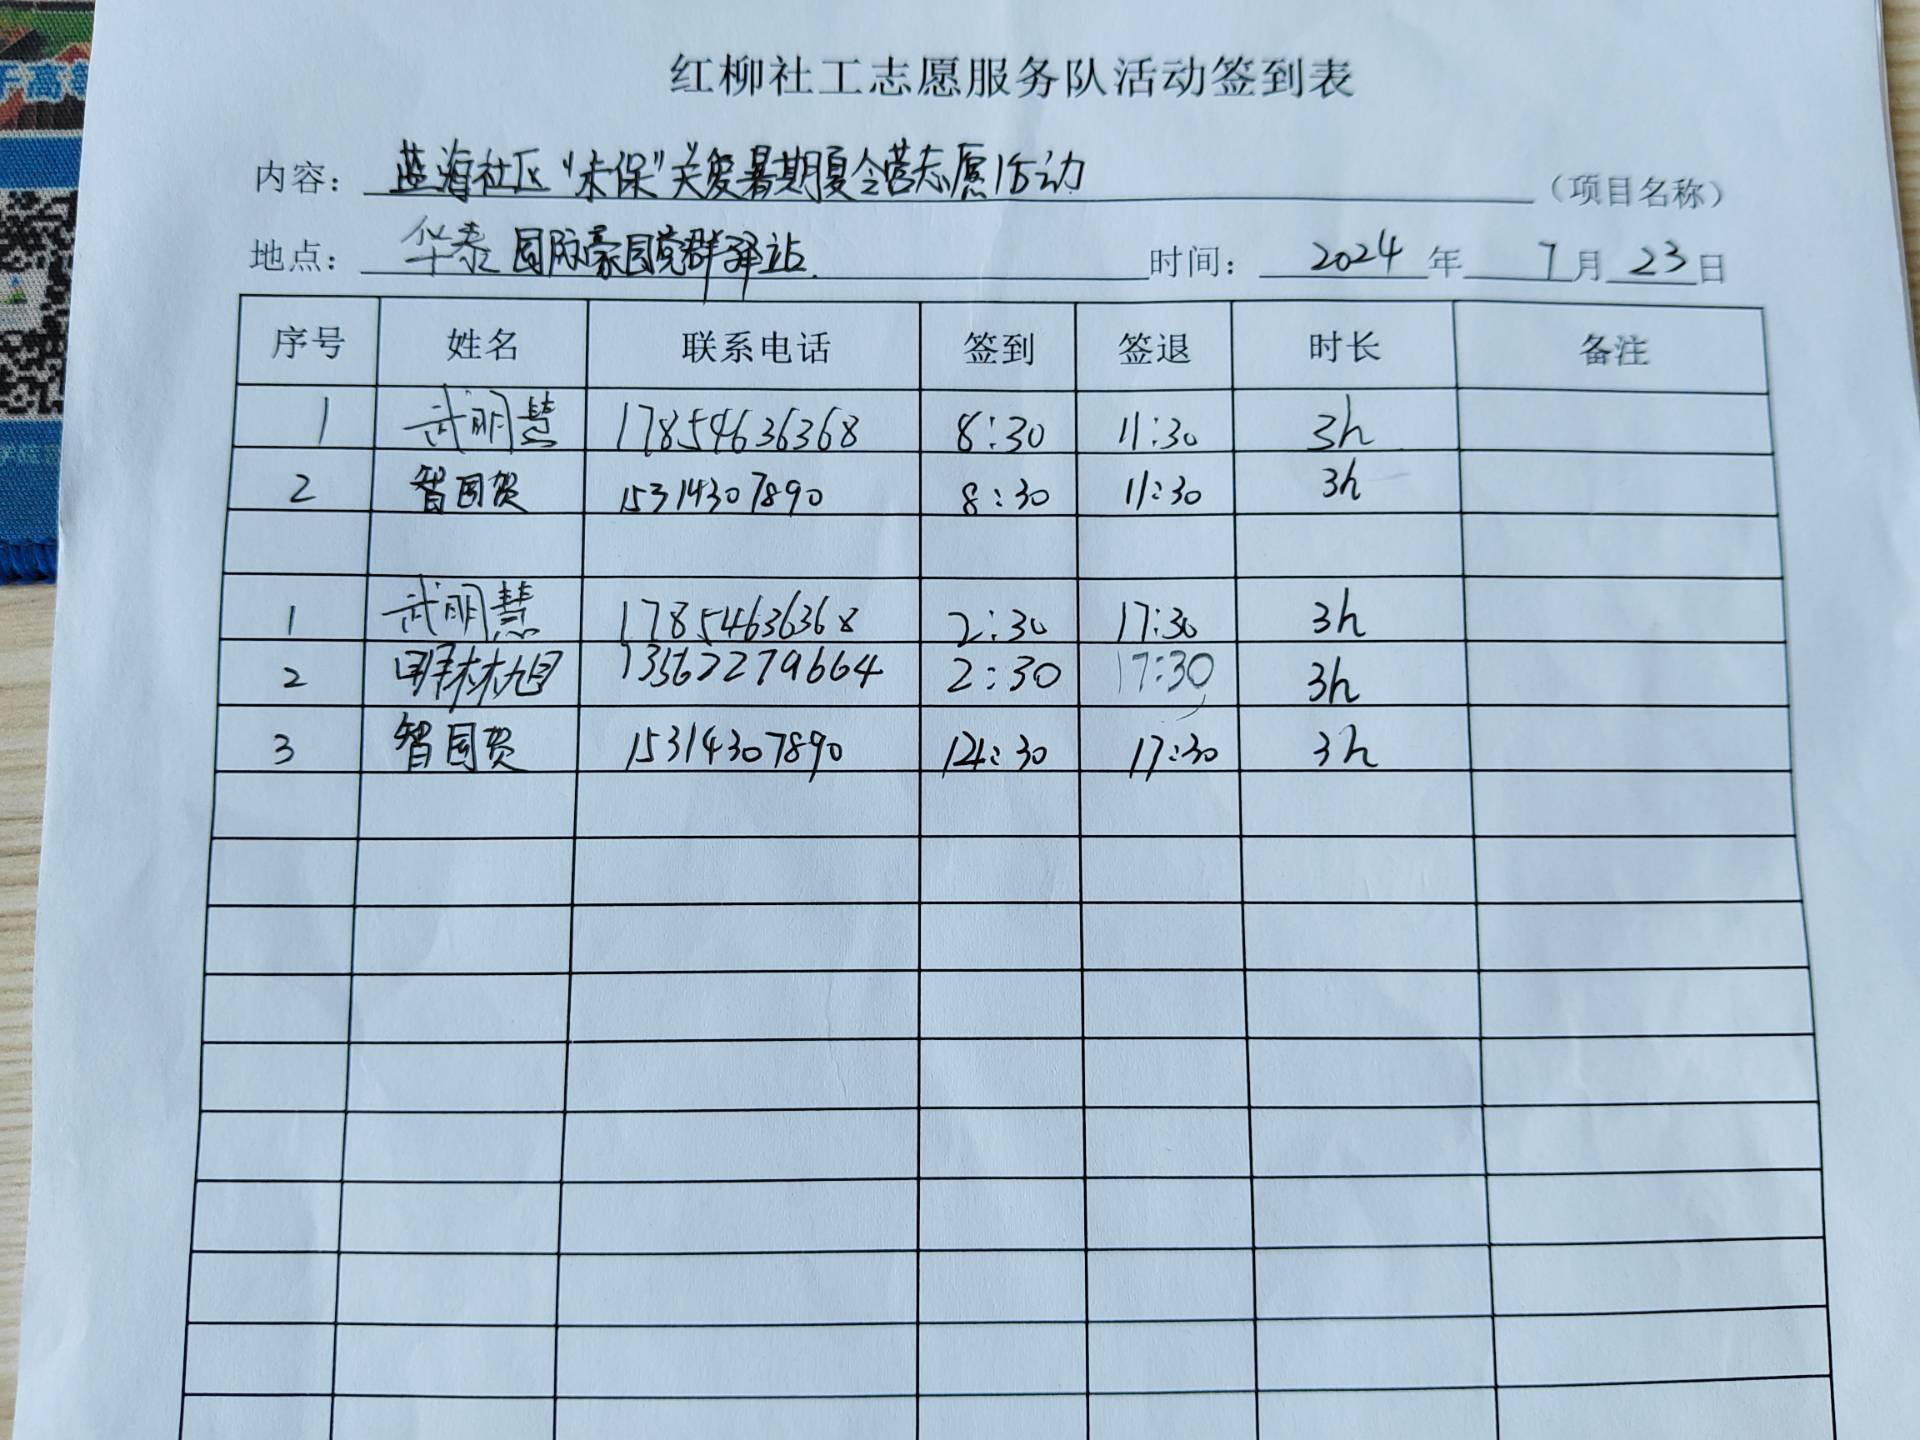 红柳社工志愿服务队活动签到表
内容： 蓝海社区“未保”关爱暑期夏令营志愿活动 （项目名称）
地点： 华泰国际豪园党群驿站 时间： 2024 年 7 月 23 日
序号 姓名 联系电话 签到 签退 时长 备注
1 武明慧 17854636368 8:30 11:30 3h
2 智国贺 15314307890 8:30 11:30 3h
1 武明慧 17854636368 2:30 17:30 3h
2 林旭 13562279664 2:30 17:30 3h
3 智国贺 15314307890 14:30 17:30 3h